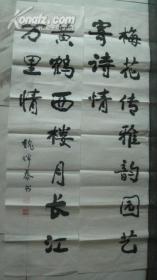 梅花传雅韵园艺
寄诗情
黄鹤西楼月长江
万里情